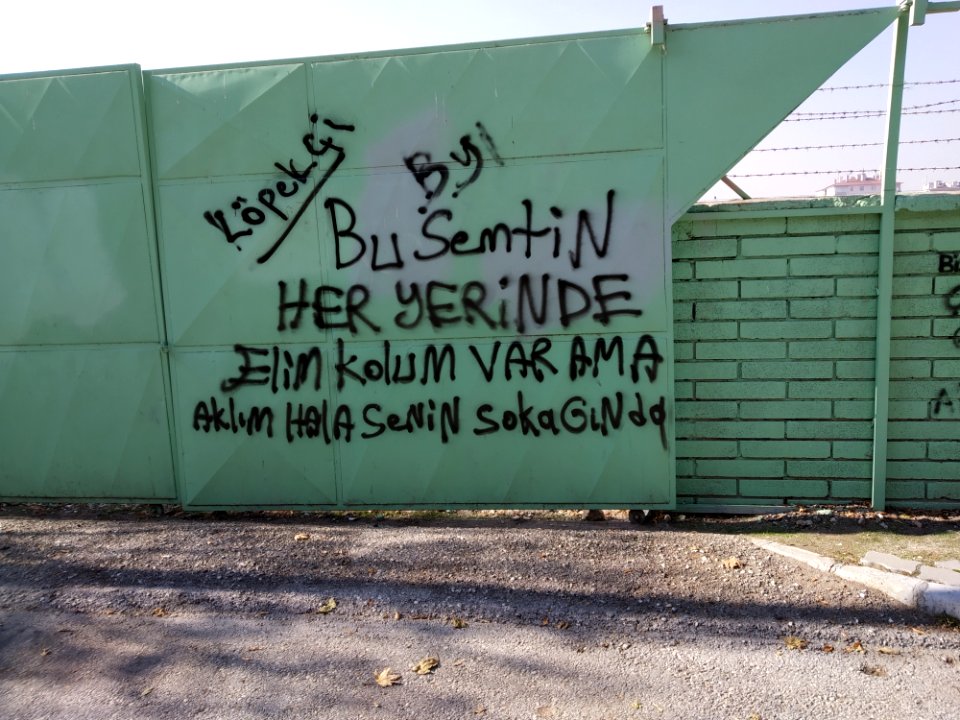 Köpekçi
By
Bu SemtiN
HER YERiNDE
Elim kolum VAR AMA
Aklım Hala Senin sokaGında